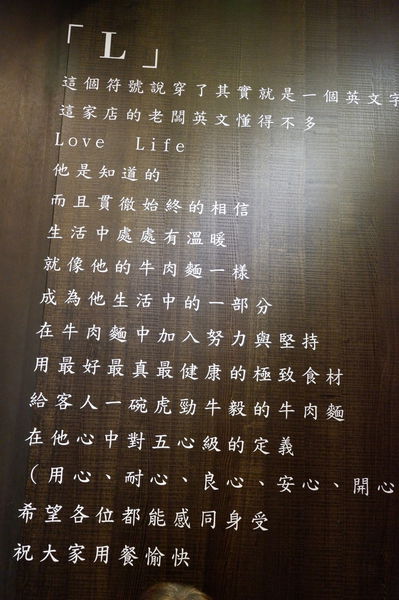 「L」
這個符號說穿了其實就是一個英文字
這家店的老闆英文懂得不多
Love Life
他是知道的
而且貫徹始終的相信
生活中處處有溫暖
就像他的牛肉麵一樣
成為他生活中的一部分
在牛肉麵中加入努力與堅持
用最好最真最健康的極致食材
給客人一碗虎勁牛毅的牛肉麵
在他心中對五心級的定義
(用心、耐心、良心、安心、開心
希望各位都能感同身受
祝大家用餐愉快